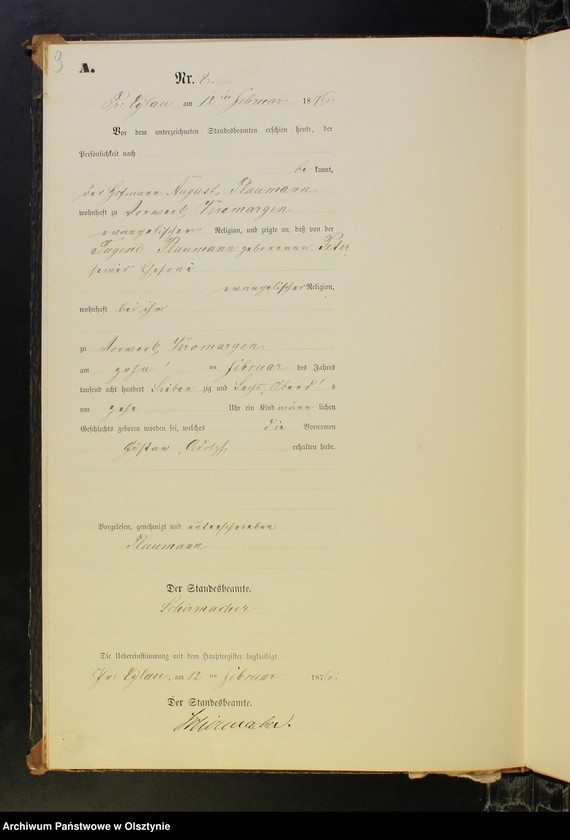 9
A.
Nr. 8.
Pr. Eylau am 12 ten Februar 1876.
Vor dem unterzeichneten Standesbeamten erschien heute, der
Persönlichkeit nach
be kannt,
der Hofmann August Plaumann
wohnhaft zu Vorwerk Kromargen
evangelischer Religion, und zeigte an, daß von der
Plaumann geborenen Peter
seiner Ehefrau
evangelischer Religion,
wohnhaft bei ihm
zu Vorwerk Kromargen
am zehn ten Februar des Jahres
tausend acht hundert Sieben zig und Sechs Abends
um zehn Uhr ein Kind männ lichen
Geschlechts geboren worden sei, welches die Vornamen
Gustav Adolph
erhalten habe.
Vorgelesen, genehmigt und unterschrieben
Plaumann
Der Standesbeamte.
Schirmacher
Die Uebereinstimmung mit dem Hauptregister beglaubigt.
Pr. Eylau, am 12 ten Februar 1876.
Der Standesbeamte.
Schirmacher.
Archiwum Państwowe w Olsztynie